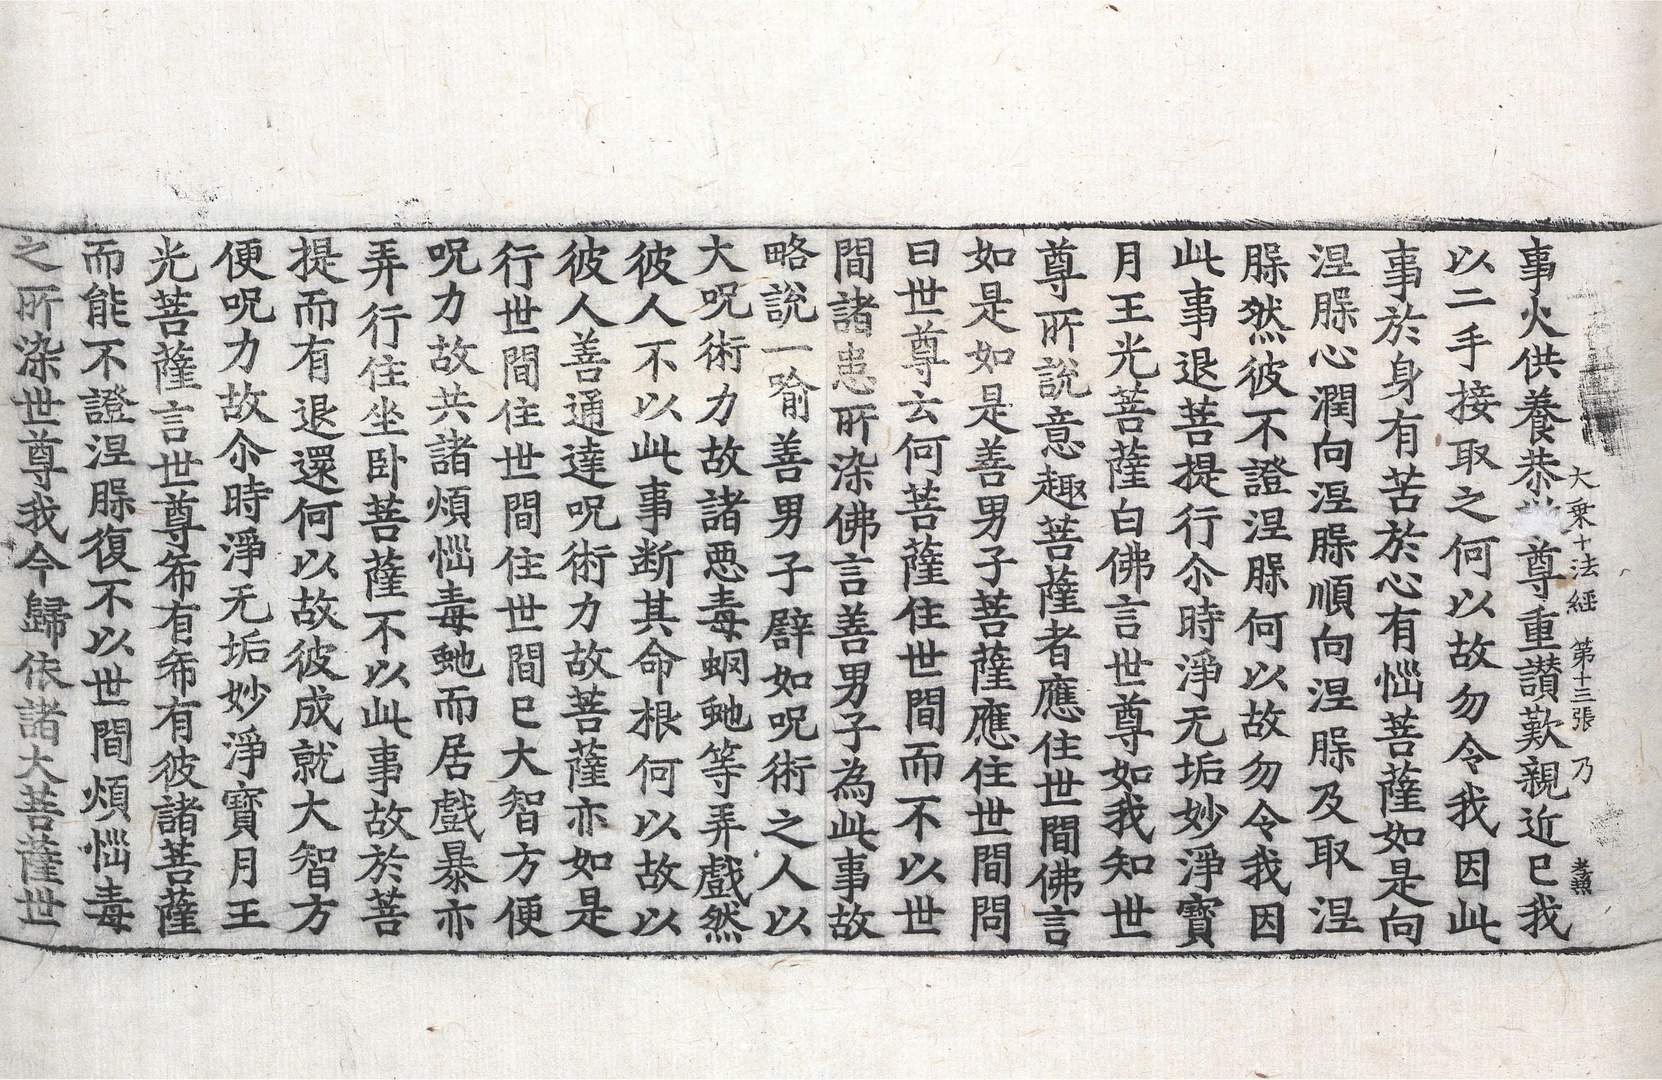 大乗十法經 第十三張 乃 孝照
事火供養恭尊重讃歎親近已我
以二手接取之何以故勿令我因此
事於身有苦於心有惱菩薩如是向
涅槃心潤向涅槃順向涅槃及取涅
槃然彼不證涅槃何以故勿令我因
此事退菩提行尒時淨无垢妙淨寶
月王光菩薩白佛言世尊如我知世
尊所説意趣菩薩者應住世間佛言
如是如是善男子菩薩應住世間問
曰世尊云何菩薩住世間而不以世
間諸患所染佛言善男子為此事故
略説一喻善男子譬如呪術之人以
大呪術力故諸惡毒蝄虵等弄戲然
彼人不以此事断其命根何以故以
彼人善通達呪術力故菩薩亦如是
行世間住世間住世間已大智方便
呪力故共諸煩惱毒虵而居戲暴亦
弄行住坐卧菩薩不以此事故於菩
提而有退還何以故彼成就大智方
便呪力故尒時淨无垢妙淨寶月王
光菩薩言世尊希有希有彼諸菩薩
而能不證涅槃復不以世間煩惱毒
之所染世尊我今歸依諸大菩薩世